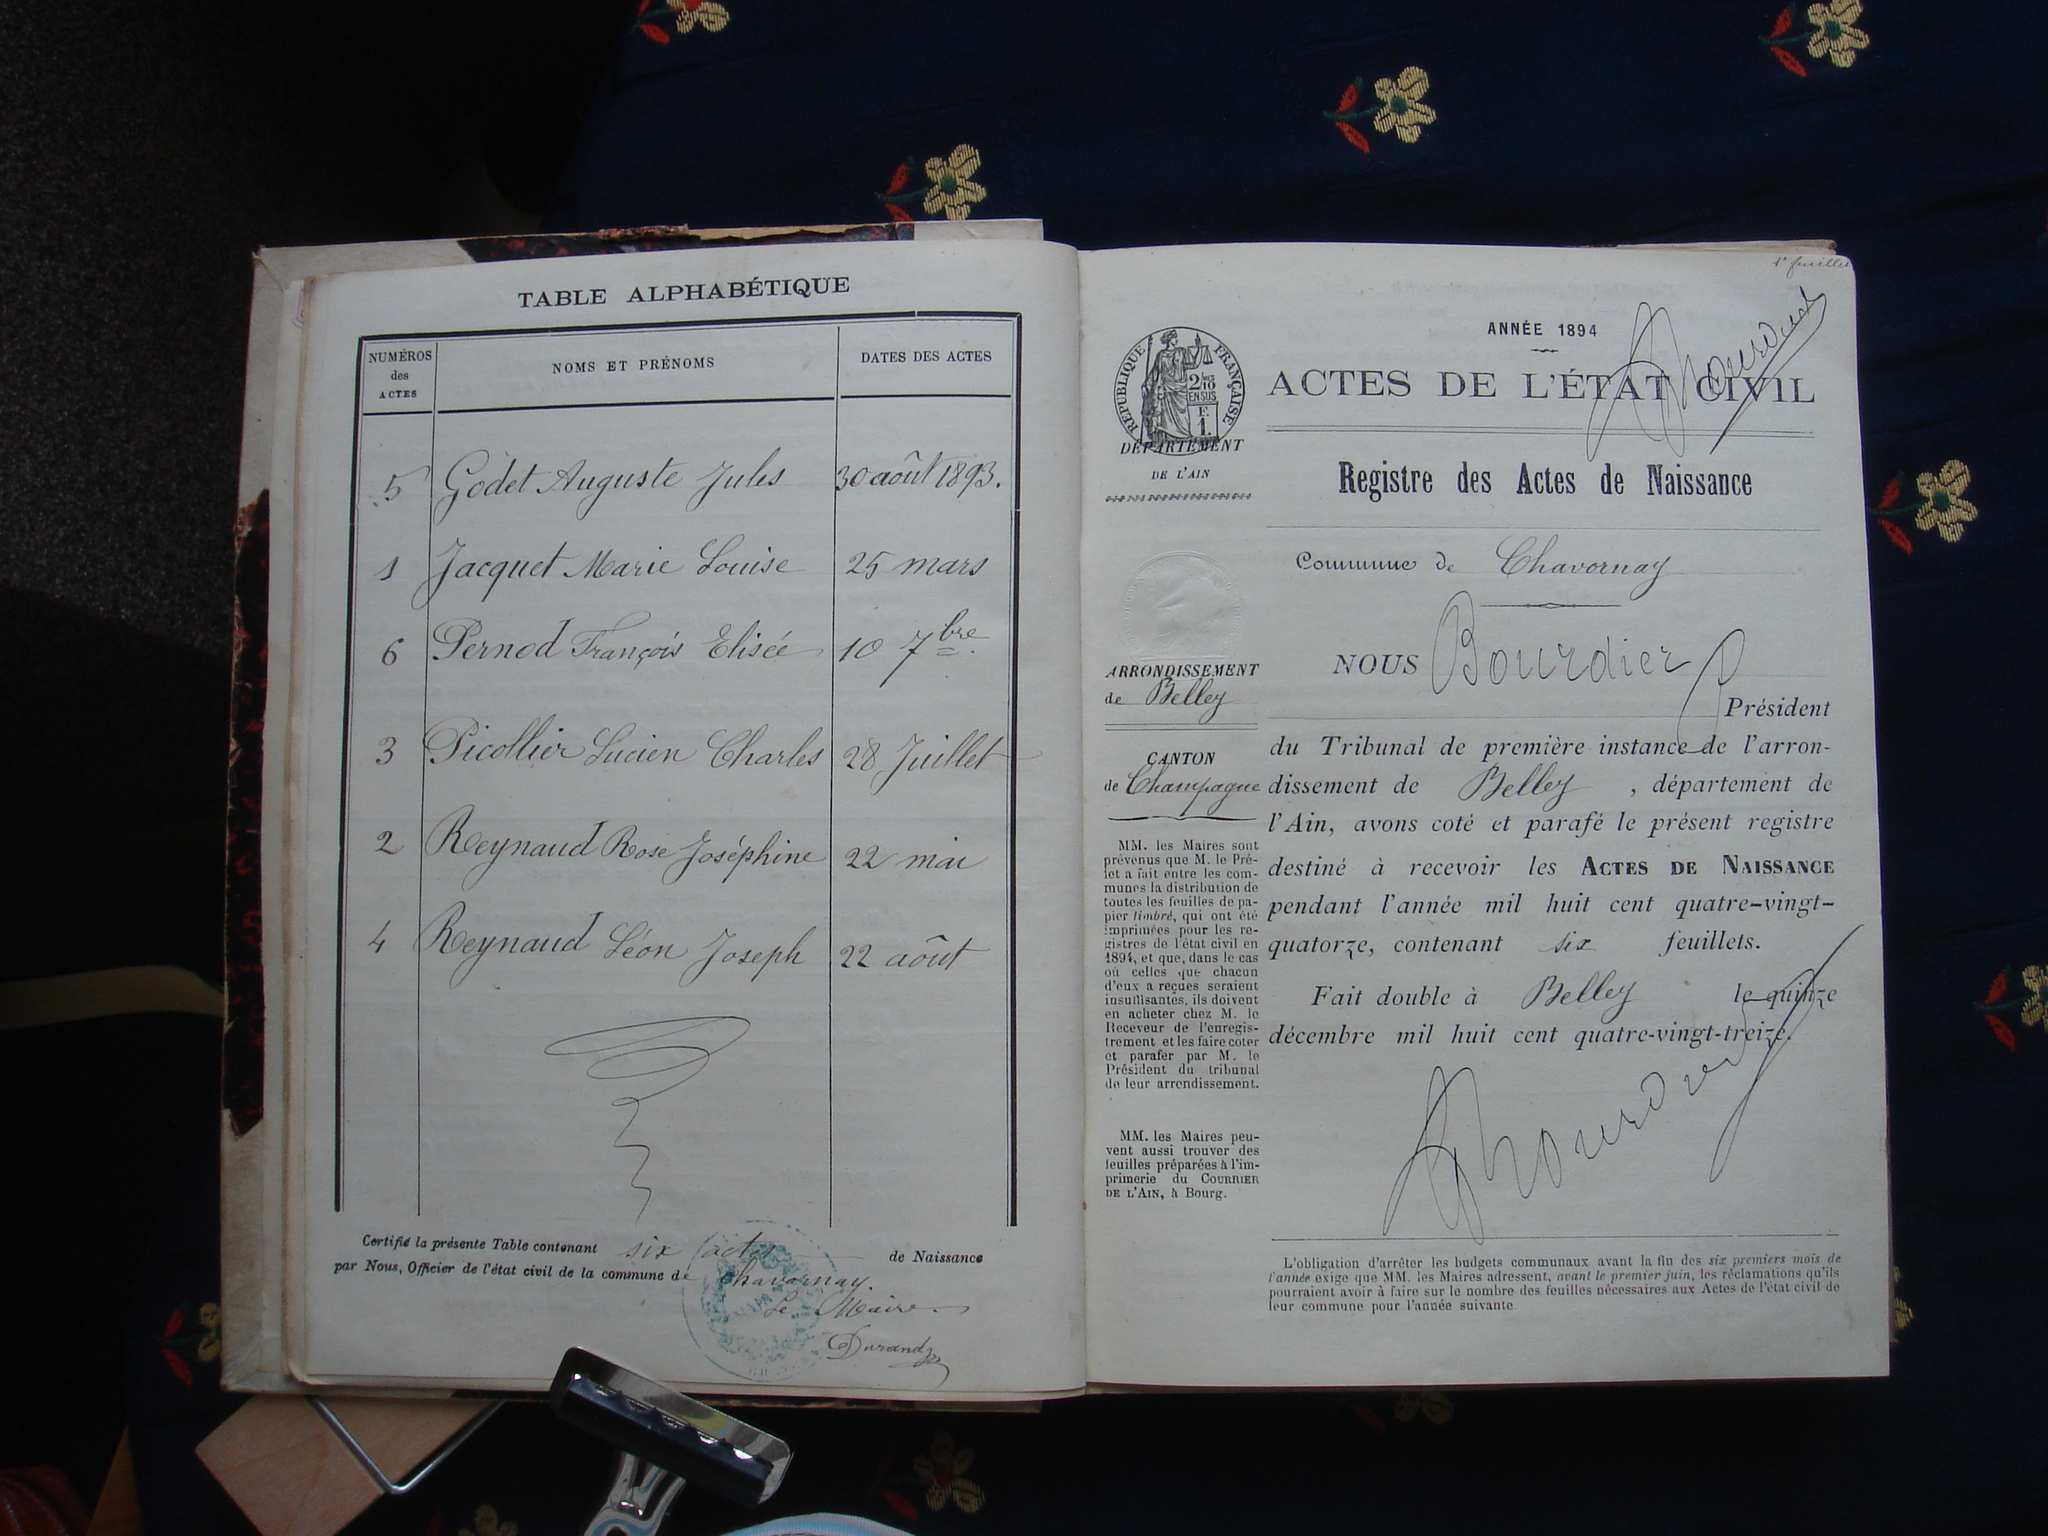 TABLE ALPHABÉTIQUE
NUMÉROS
des
ACTES
NOMS ET PRÉNOMS
DATES DES ACTES
5 Godet Auguste Jules 30 août 1893.
1 Jacquet Marie Louise 25 mars
6 Pernod François Elisée 10 7bre
3 Picollier Lucien Charles 28 Juillet
2 Reynaud Rose Joséphine 22 mai
4 Reynaud Léon Joseph 22 août
Certifié la présente Table contenant six actes de Naissance
par Nous, Officier de l'état civil de la commune de Chavornay.
Le Maire
Durand
1er feuillet
ANNÉE 1894
ACTES DE L'ÉTAT CIVIL
Registre des Actes de Naissance
RÉPUBLIQUE FRANÇAISE
2/10
EN SUS
F.
1.
DÉPARTEMENT
DE L'AIN
ARRONDISSEMENT
de Belley
CANTON
de Champagne
MM. les Maires sont
prévenus que M. le Pré-
fet a fait entre les com-
munes la distribution de
toutes les feuilles de pa-
pier timbré, qui ont été
imprimées pour les re-
gistres de l'état civil en
1894, et que, dans le cas
où celles que chacun
d'eux a reçues seraient
insuffisantes, ils doivent
en acheter chez M. le
Receveur de l'enregis-
trement et les faire coter
et parafer par M. le
Président du tribunal
de leur arrondissement.
MM. les Maires peu-
vent aussi trouver des
feuilles préparées à l'im-
primerie du COURRIER
DE L'AIN, à Bourg.
Commune de Chavornay
NOUS Bourdier
Président
du Tribunal de première instance de l'arron-
dissement de Belley, département de
l'Ain, avons coté et parafé le présent registre
destiné à recevoir les ACTES DE NAISSANCE
pendant l'année mil huit cent quatre-vingt-
quatorze, contenant six feuillets.
Fait double à Belley le quinze
décembre mil huit cent quatre-vingt-treize.
L'obligation d'arrêter les budgets communaux avant la fin des six premiers mois de
l'année exige que MM. les Maires adressent, avant le premier juin, les réclamations qu'ils
pourraient avoir à faire sur le nombre des feuilles nécessaires aux Actes de l'état civil de
leur commune pour l'année suivante.